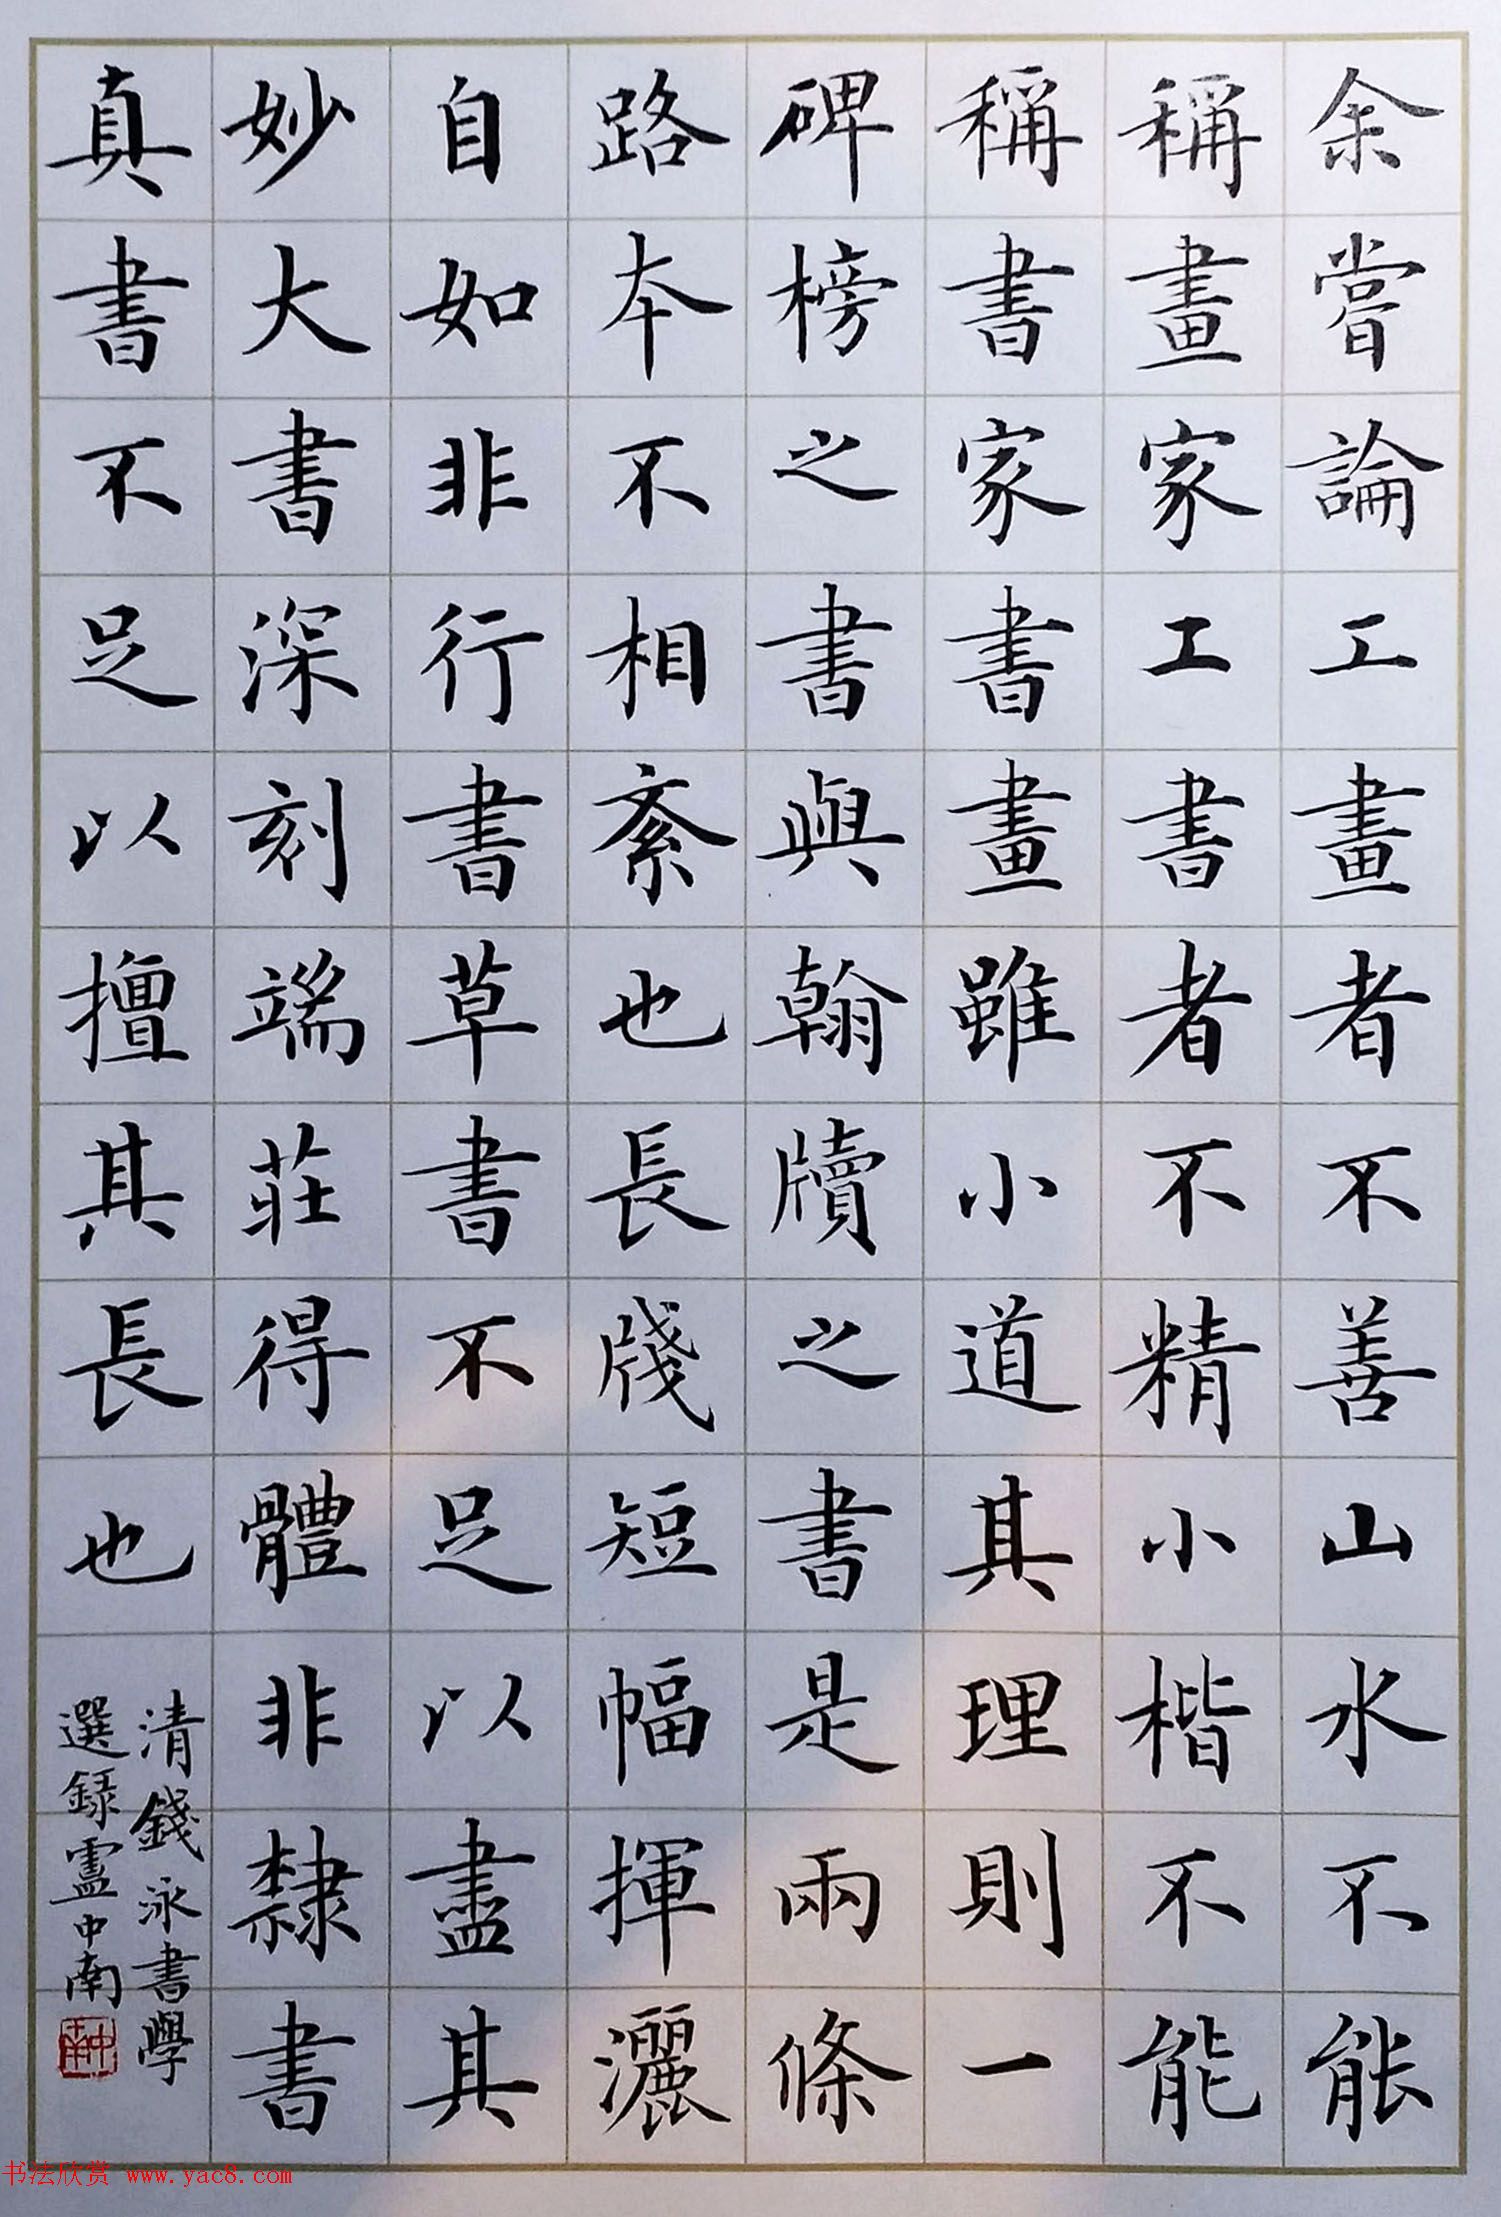 余嘗論工畫者不善山水不能
稱畫家工書者不精小楷不能
稱書家書畫雖小道其理則一
碑榜之書與翰牘之書是兩條
路本不相紊也長牋短幅揮灑
自如非行書草書不足以盡其
妙大書深刻端莊得體非隸書
真書不足以擅其長也
清錢泳書學
選錄盧中南
中南
书法欣赏 www.yac8.com